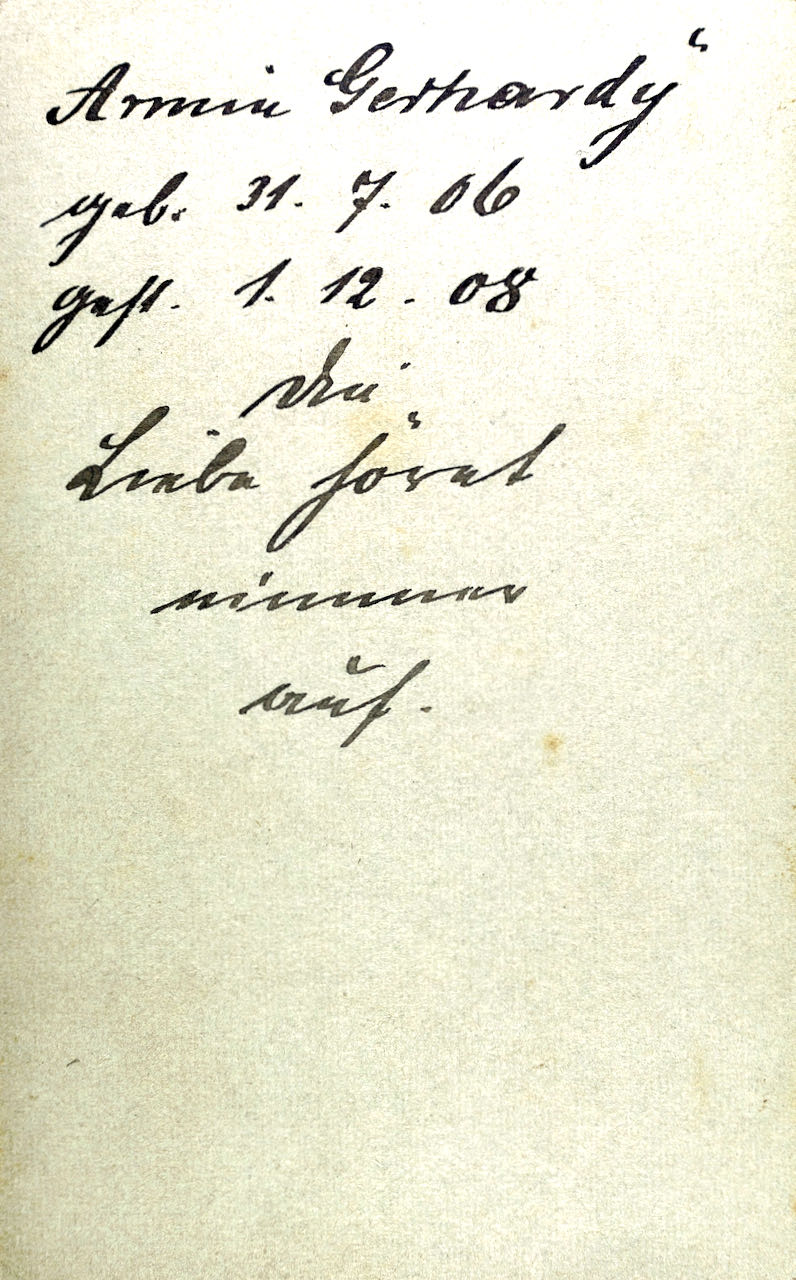 Armin Gerhardy
geb. 31. 7. 06
gest. 1. 12. 08
die
Liebe höret
nimmer
auf.